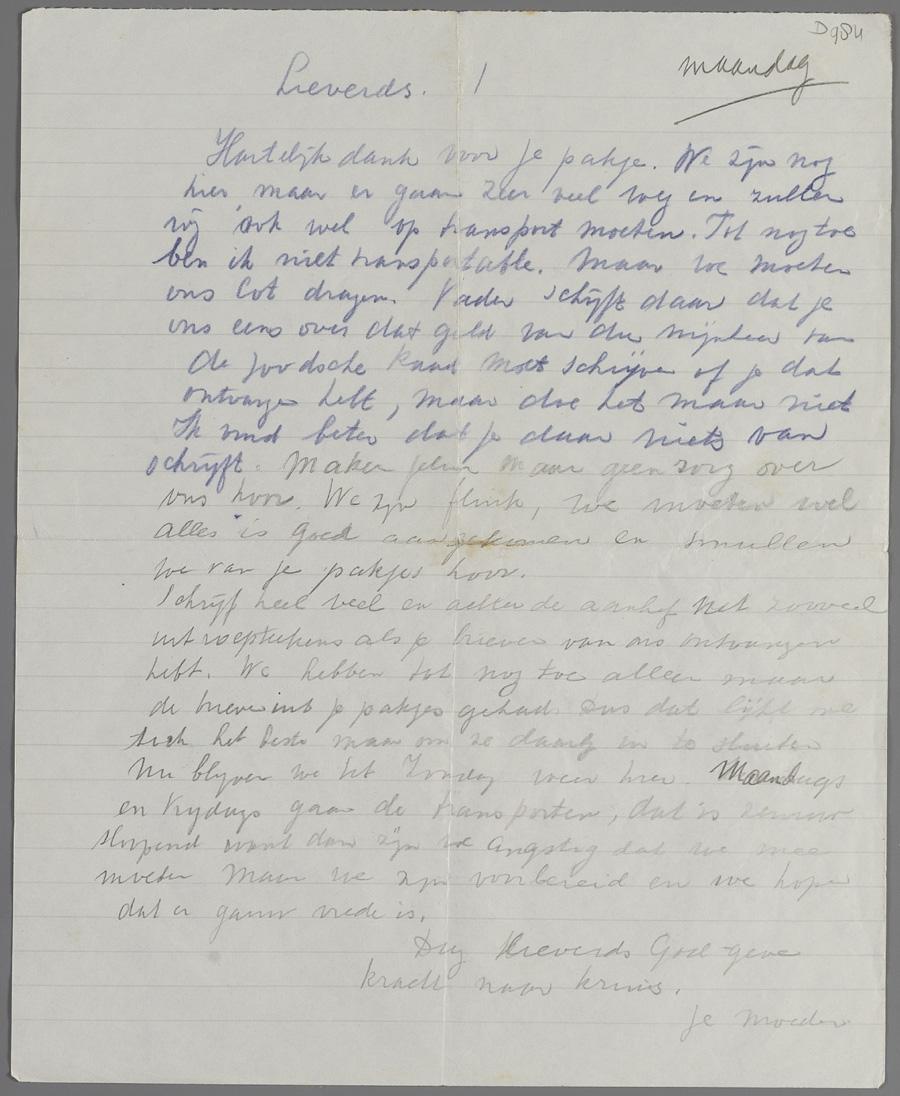 D984
maandag
Lieverds. 1
Hartelijk dank voor je pakje. We zijn nog
hier, maar er gaan zeer veel weg en zullen
wij ook wel op transport moeten. Tot nog toe
ben ik niet transportable. Maar we moeten
ons lot dragen. Vader schijft daar dat je
ons eens over dat geld van die mijnheer van
de Joodsche Raad moet schrijven of je dat
ontvangen hebt, maar doe het maar niet
Ik vind beter dat je daar niets van
schrijft. Maken jelui maar geen zorg over
ons hoor. We zijn flink, we moeten wel
alles is goed aangekomen en smullen
we van je pakjes hoor.
Schrijf heel veel en achter de aanhef net zooveel
uitroepteekens als je brieven van ons ontvangen
hebt. We hebben tot nog toe alleen maar
de brieven uit je pakjes gehad. Dus dat lijkt me
toch het beste maar om ze daarbij in te sluiten
Nu blijven we tot Zondag weer hier. Maandags
en Vrijdags gaan de transporten, dat is zenuw
sloopend want dan zijn we angstig dat we mee
moeten Maar we zijn voorbereid en we hopen
dat er gauw vrede is.
Dag lieverds God geve
kracht naar kruis.
je moeder